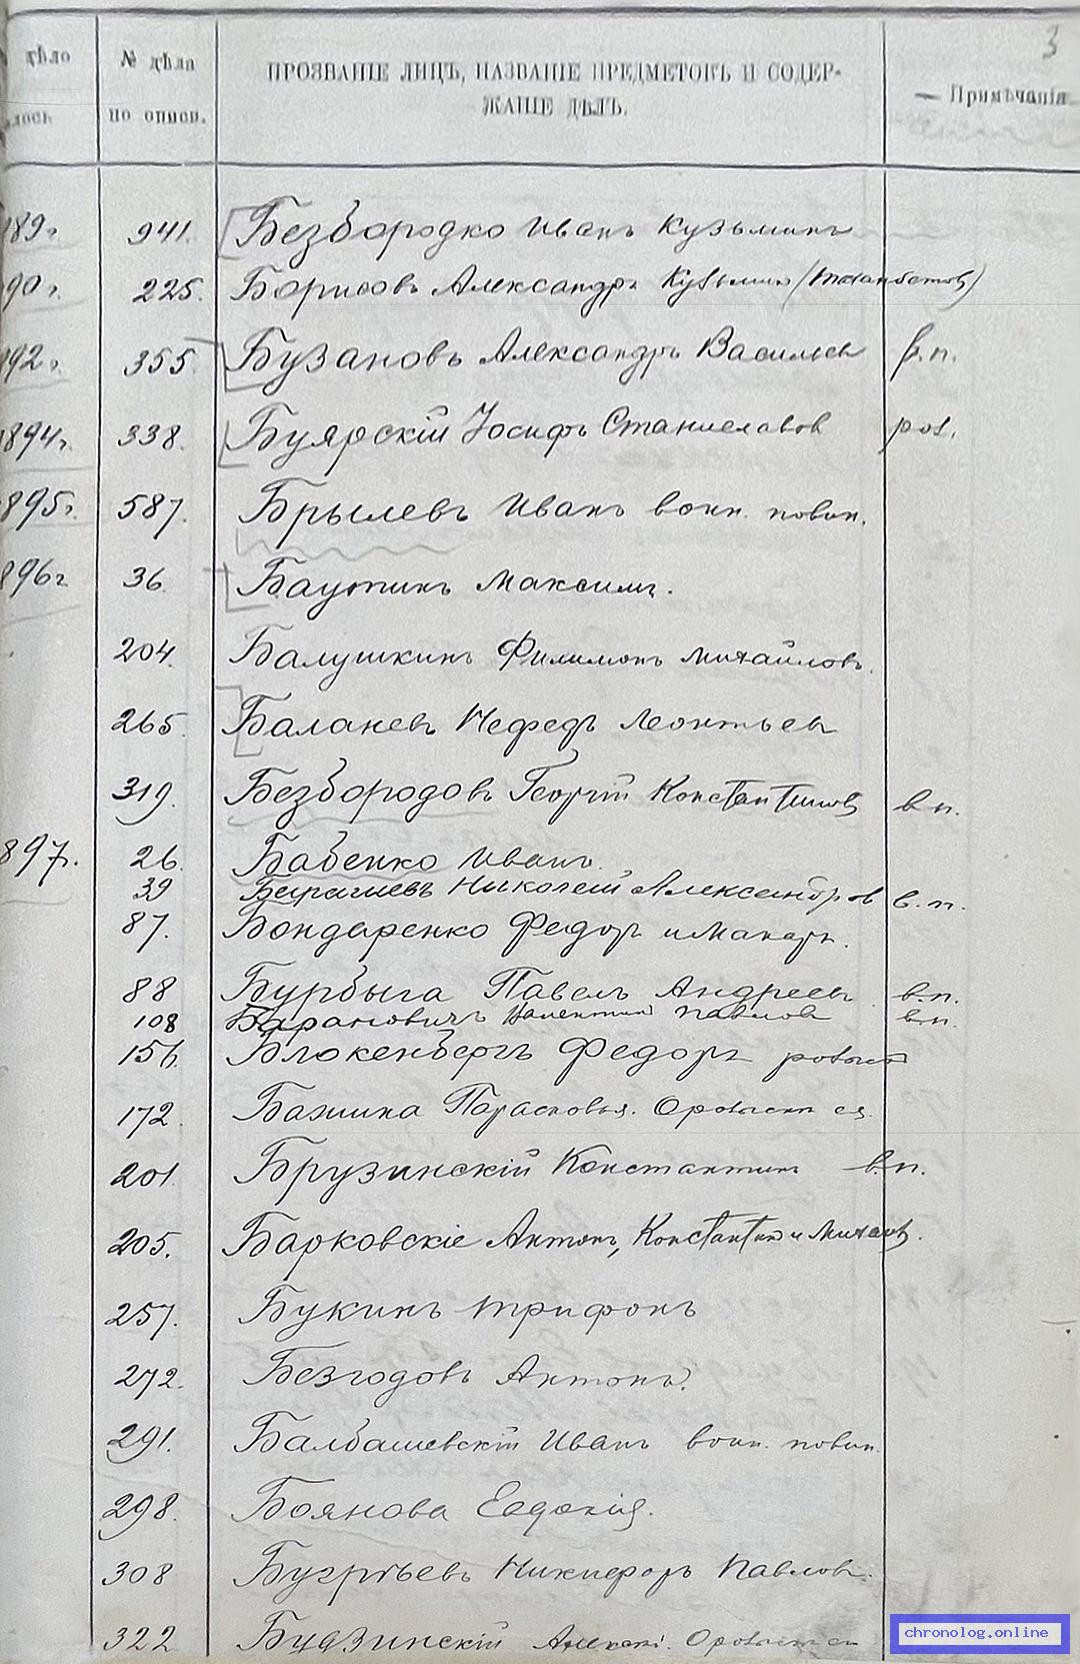 3
дѣло
лось
№ дѣла
по описи.
ПРОЗВАНІЕ ЛИЦЪ, НАЗВАНІЕ ПРЕДМЕТОВЪ И СОДЕР-
ЖАНІЕ ДѢЛЪ.
Примѣчанія
189г. 941. Безбородко Иванъ Кузьминъ
90г. 225. Борисовъ Александръ Кузьминъ
92г. 355 Бузановъ Александръ Васильев в.п.
1894г. 338. Буярскій Іосифъ Станиславов роз.
895г. 587. Брылевъ Иванъ воин. повин.
896г 36. Баутинъ Максимъ.
204. Балушкинъ Филимонъ Михайловъ.
265. Баланевъ Нефедъ Леонтьев
319. Безбородовъ Георгій Константинов в п.
897г. 26. Бабенко Иванъ
39 Николай Александров в.п.
87. Бондаренко Федоръ и Макаръ.
88 Бурбыга Павелъ Андреев в.п.
108 Барановичъ Валентин Павлов в.п.
156. Блокенбергъ Федоръ розыск
172. Бажина Парасковья. О розыск ея
201. Брузинскій Константинъ в.п.
205. Барковскіе Антонъ, Константин и Михаил.
257. Букинъ Трифонъ
272. Безгодовъ Антонъ.
291. Балбашевскій Иванъ воин. повин.
298. Боянова Евдокія.
308 Бугрѣевъ Никифоръ Павловъ.
322 Будзинскій Алексѣй. О розыск
chronolog.online